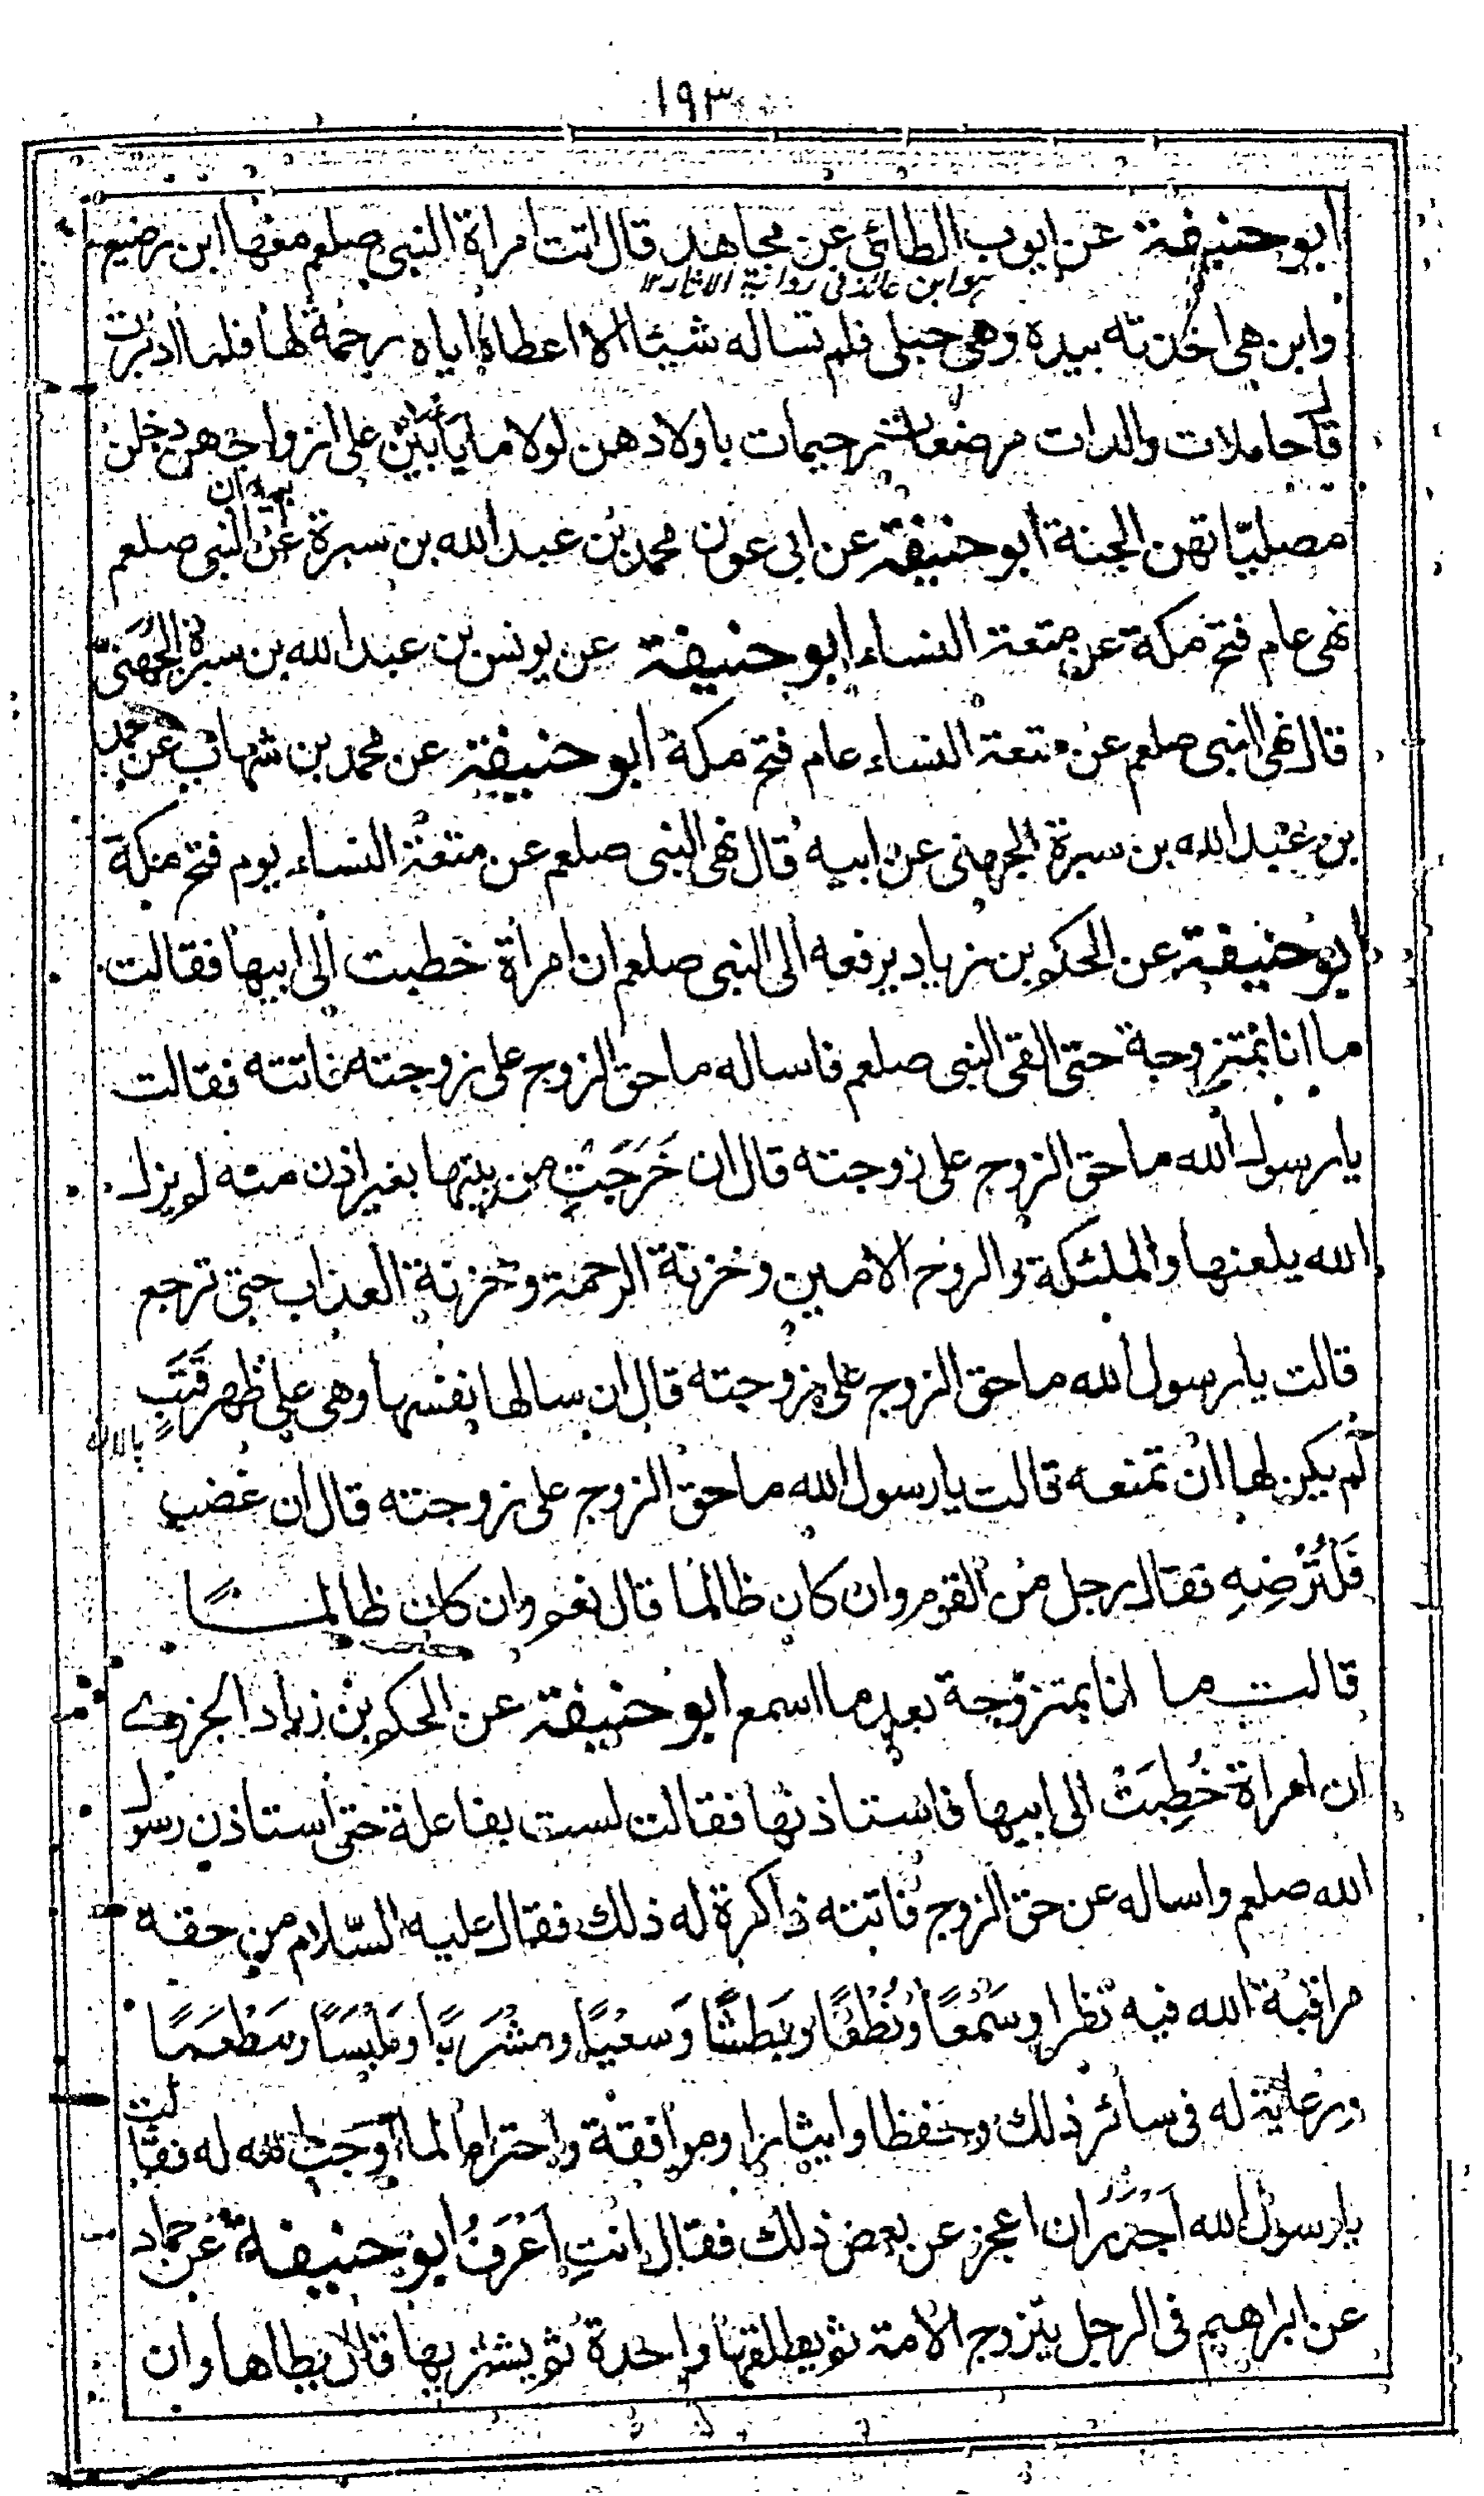 ١٩٣
ابو حنيفة عن ايوب الطائى عن مجاهد قال اتت امراة النبى صلعم معها ابن رضيع
هو ابن عائذ فى رواية الاثار ١٢
وابن هى اخذته بيده وهى حبلى فلم تساله شيئا الا اعطاه اياه رحمة لها فلما ادبرت
قال حاملات والدات مرضعات رحيمات باولادهن لولا ما يأتين على ازواجهن دخلن
مصلياتهن الجنة ابو حنيفة عن ابى عون محمد بن عبد الله بن سبرة عن النبى صلعم
نهى عام فتح مكة عن متعة النساء ابو حنيفة عن يونس بن عبد الله بن سبرة الجُهَنىّ
قال نهى النبى صلعم عن متعة النساء عام فتح مكة ابو حنيفة عن محمد بن شهاب عن محمد
بن عبد الله بن سبرة الجهنى عن ابيه قال نهى النبى صلعم عن متعة النساء يوم فتح مكة
ابو حنيفة عن الحكم بن زياد يرفعه الى النبى صلعم ان امراة خطبت الى ابيها فقالت
ما انا بمتزوجة حتى القى النبى صلعم فاساله ما حق الزوج على زوجته فاتته فقالت
يا رسول الله ما حق الزوج على زوجته قال ان خَرَجَتْ من بيتها بغير اذن منه لم يزل
الله يلعنها والملئكة والروح الامين وخزنة الرحمة وخزنة العذاب حتى ترجع
قالت يا رسول الله ما حق الزوج على زوجته قال ان سالها نفسها وهى على ظهر قَتَبٍ
پالان
لم يكن لها ان تمنعه قالت يا رسول الله ما حق الزوج على زوجته قال ان غضب
فَلْتُرْضِهِ فقال رجل من القوم وان كان ظالما قال نعم وان كان ظالمًا
قالت ما انا بمتزوجة بعد ما اسمع ابو حنيفة عن الحكم بن زياد الجزرى
ان امراة خُطِبَتْ الى ابيها فاستاذنها فقالت لست بفاعلة حتى استاذن رسول
الله صلعم واساله عن حق الزوج فاتته ذاكرة له ذلك فقال عليه السّلام من حقه
مراقبة الله فيه نظرا وسَمْعًا ونُطْقًا وبَطشًا وسعيًا ومشْرَبًا ومَلْبَسًا ومَطْعَمًا
ورعاية له فى سائر ذلك وحفظا وايثارا وموافقة واحتراما لما اَوجَب الله له فقالت
يا رسول الله اَجْدَرُ ان اعجز عن بعض ذلك فقال انتِ اَعْرَفُ ابو حنيفة عن حماد
عن ابراهيم فى الرجل يتزوج الامة ثم يطلقها واحدة ثم يشتريها قال يطاها وان